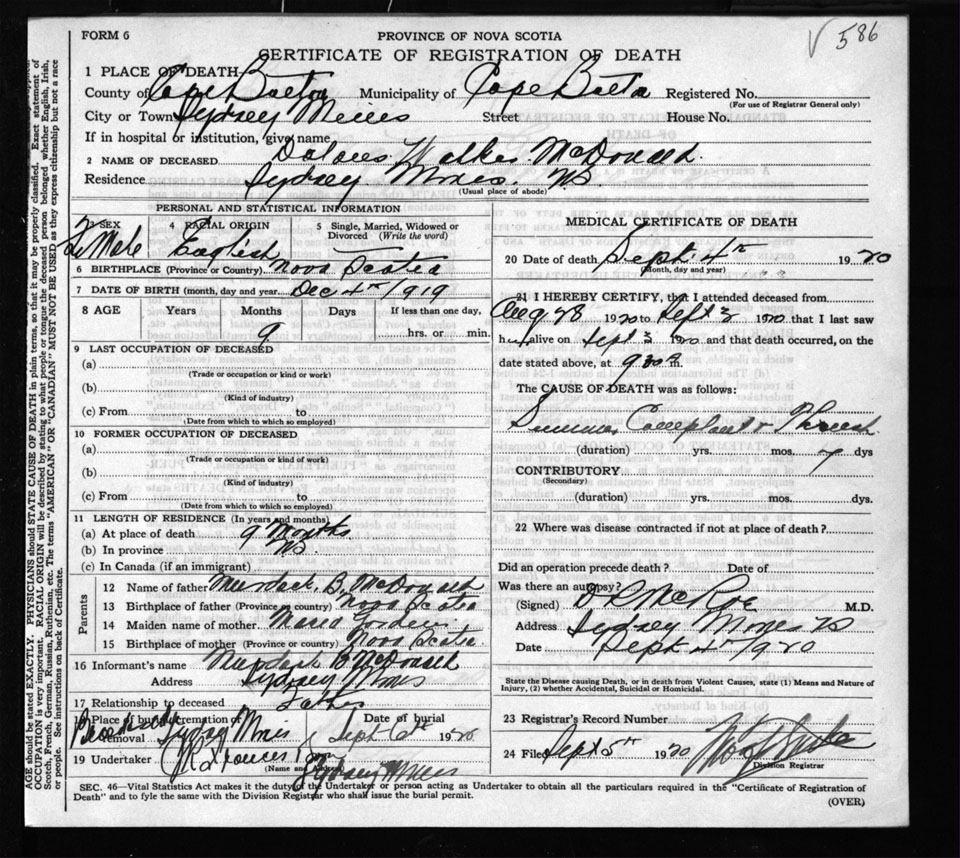 586
FORM 6
PROVINCE OF NOVA SCOTIA
CERTIFICATE OF REGISTRATION OF DEATH
1 PLACE OF DEATH
County of Cape Breton Municipality of Cape Breton Registered No.
(For use of Registrar General only)
City or Town Sydney Mines Street House No.
If in hospital or institution, give name
2 NAME OF DECEASED Dolores Walker McDonald.
Residence Sydney Mines. N.S.
(Usual place of abode)
PERSONAL AND STATISTICAL INFORMATION
SEX 4 RACIAL ORIGIN 5 Single, Married, Widowed or
Divorced (Write the word)
Female English
6 BIRTHPLACE (Province or Country) Nova Scotia
7 DATE OF BIRTH (month, day and year) Dec 4th 1919
8 AGE Years Months Days If less than one day,
9 hrs. or min.
9 LAST OCCUPATION OF DECEASED
(a)
(Trade or occupation or kind or work)
(b)
(Kind of industry)
(c) From to
(Date from which to which so employed)
10 FORMER OCCUPATION OF DECEASED
(a)
(Trade or occupation or kind of work)
(b)
(Kind of industry)
(c) From to
(Date from which to which so employed)
11 LENGTH OF RESIDENCE (In years and months)
(a) At place of death 9 Months
(b) In province N.S.
(c) In Canada (if an immigrant)
Parents
12 Name of father Murdock. B. McDonald
13 Birthplace of father (Province or country) Nova Scotia
14 Maiden name of mother
15 Birthplace of mother (Province or country) Nova Scotia
16 Informant's name Murdock B McDonald
Address Sydney Mines
17 Relationship to deceased Father
18 Place of burial, cremation or Date of burial
removal Sydney Mines Sept 6th 1920
19 Undertaker
(Name and Address) Sydney Mines
MEDICAL CERTIFICATE OF DEATH
20 Date of death Sept 4th 1920
(Month, day and year)
21 I HEREBY CERTIFY, that I attended deceased from
Aug 28 1920 to Sept 3 1920 that I last saw
her alive on Sept 3 1920 and that death occurred, on the
date stated above, at
The CAUSE OF DEATH was as follows:
Summer Complaint & Thrush
(duration) yrs. mos. 7 dys
CONTRIBUTORY
(Secondary)
(duration) yrs. mos. dys.
22 Where was disease contracted if not at place of death?
Did an operation precede death? Date of
Was there an autopsy?
(Signed) McRae M.D.
Address Sydney Mines NS
Date Sept 4 1920
State the Disease causing Death, or in death from Violent Causes, state (1) Means and Nature of
Injury, (2) whether Accidental, Suicidal or Homicidal.
23 Registrar's Record Number
24 Filed Sept 5th 1920
Division Registrar
SEC. 46—Vital Statistics Act makes it the duty of the Undertaker or person acting as Undertaker to obtain all the particulars required in the "Certificate of Registration of
Death" and to fyle the same with the Division Registrar who shall issue the burial permit.
(OVER)
AGE should be stated EXACTLY. PHYSICIANS should STATE CAUSE OF DEATH in plain terms, so that it may be properly classified. Exact statement of
OCCUPATION is very important. RACIAL ORIGIN will be described by stating to what people or tongue the deceased person belonged whether English, Irish,
Scotch, French, German, Russian, Ruthenian, etc. The terms "AMERICAN" OR "CANADIAN" MUST NOT BE USED as they express citizenship but not a race
or people. See instructions on back of Certificate.